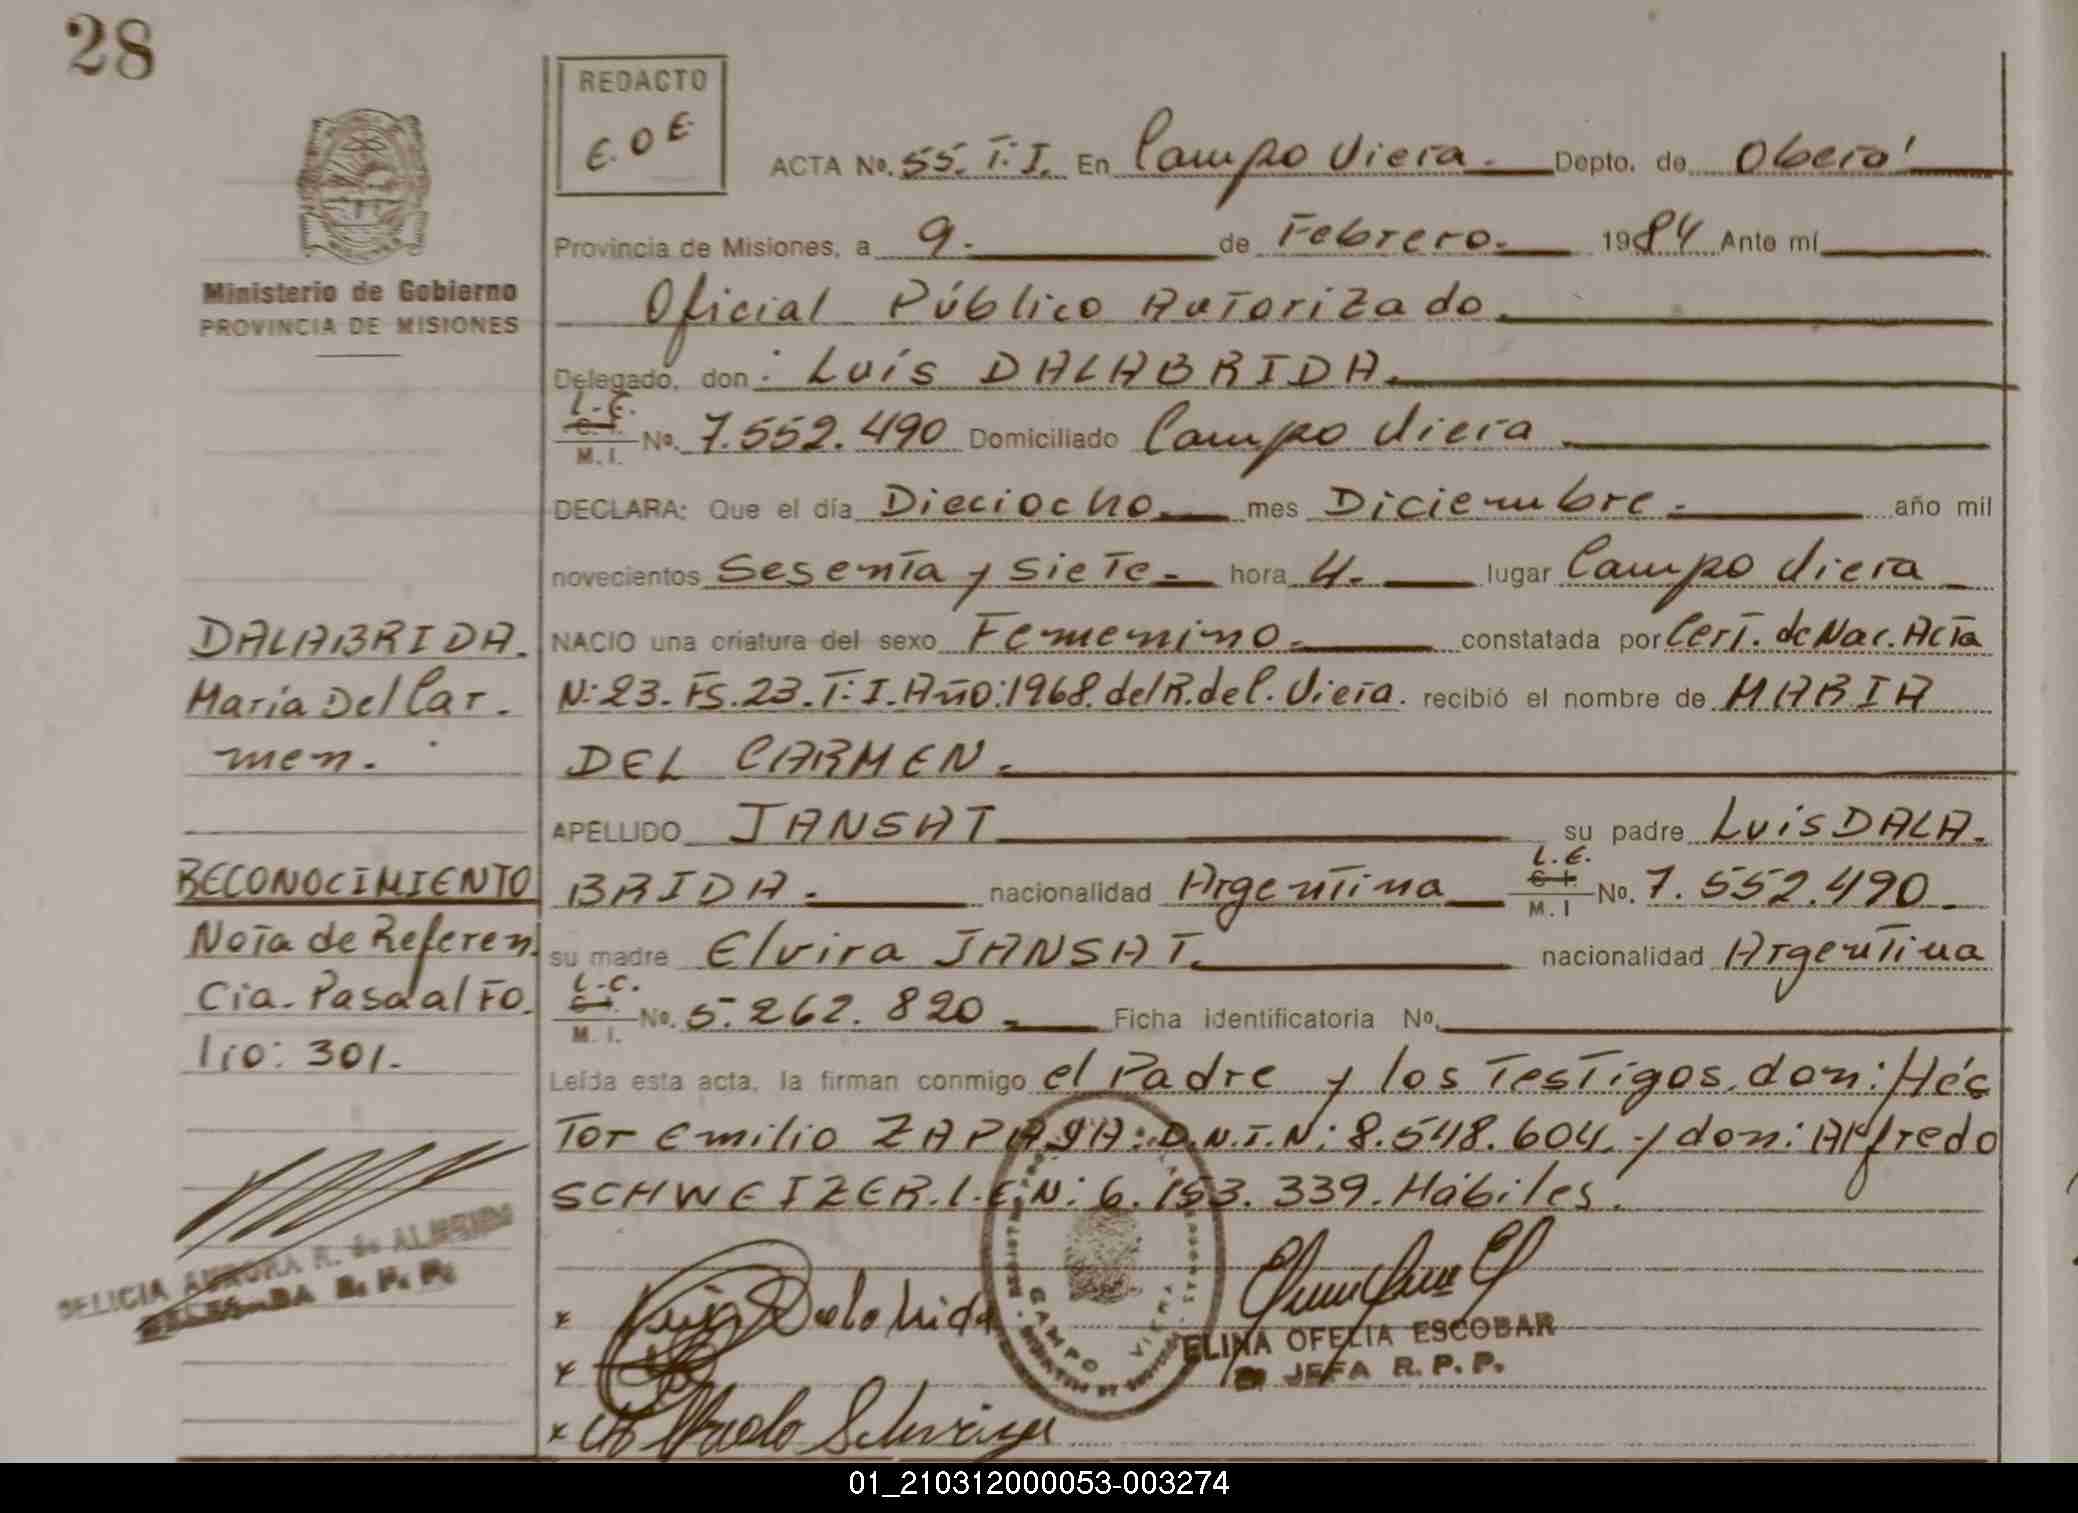 28
REDACTO
E.O.E.
Ministerio de Gobierno
PROVINCIA DE MISIONES
ACTA No. 55. T: I. En Campo Viera. Depto. de Oberá
Provincia de Misiones, a 9. de Febrero. 1984 Ante mí
Oficial Público Autorizado.
Delegado, don: Luís DALABRIDA.
L.E.
C. I.
M. I. No. 7.552.490 Domiciliado Campo Viera
DECLARA: Que el día Dieciocho. mes Diciembre. año mil
novecientos Sesenta y siete. hora 4. lugar Campo Viera
NACIO una criatura del sexo Femenino. constatada por Cert. de Nac. Acta
N: 23. Fs. 23. T: I. Año: 1968. del R. del C. Viera. recibió el nombre de MARIA
DEL CARMEN.
APELLIDO JANSAT su padre Luis DALA-
BRIDA. nacionalidad Argentina L.E. C. I. M. I No. 7.552.490
su madre Elvira JANSAT. nacionalidad Argentina
L.C.
C. I.
M. I. No. 5.262.820 Ficha identificatoria No.
Leída esta acta, la firman conmigo el Padre y los Testigos, don: Héc
Tor Emilio ZAPAYA: D.N.I.N: 8.548.604. y don: Alfredo
SCHWEIZER. L.E N: 6.153.339. Hábiles.
DALABRIDA.
María Del Car-
men.
RECONOCIMIENTO
Nota de Referen.
Cia. Pasa al Fo.
lio: 301.
DELICIA AURORA R. de ALMEIDA
R. P. P.
x Luis Dalabrida
x
x Alfredo Schweizer
CAMPO VIERA
ELINA OFELIA ESCOBAR
JEFA R. P. P.
01_210312000053-003274